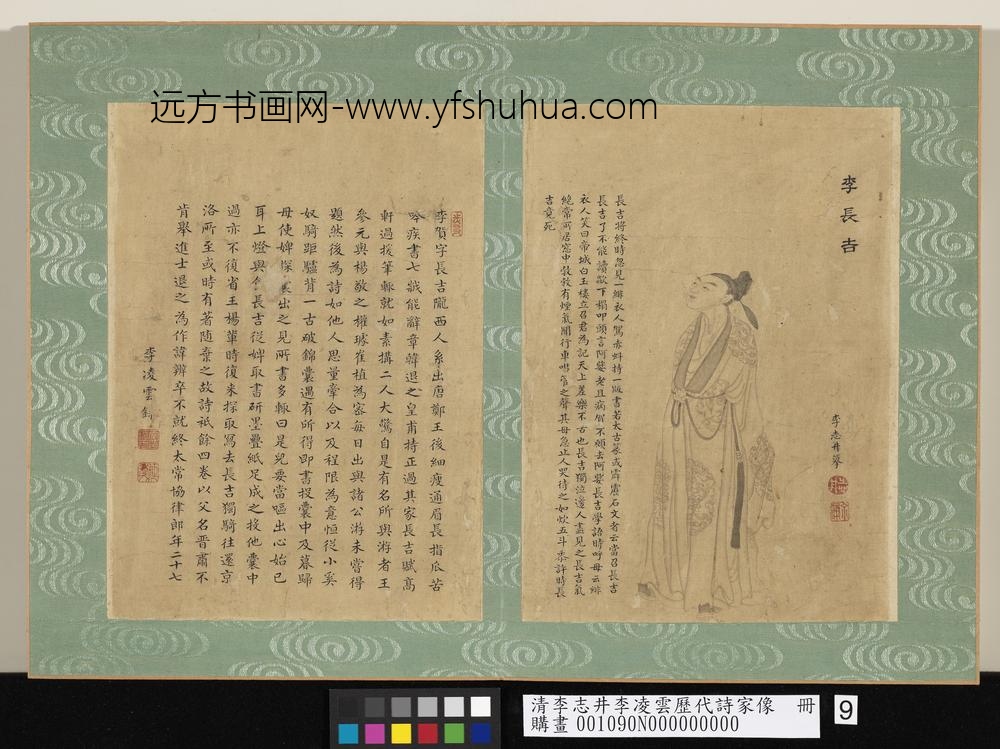 远方书画网-www.yfshuhua.com
李長吉
李志井摹
長吉將終時忽見一緋衣人駕赤虯持一版書若太古篆或霹靂石文者云當召長吉
長吉了不能讀歘下榻叩頭言阿㜷老且病賀不願去阿㜷長吉學語時呼母云緋
衣人笑曰帝城白玉樓立召君為記天上差樂不苦也長吉獨泣邊人盡見之長吉氣
絕常所居窓中勃勃有煙氣聞行車嘒管之聲其母急止人哭待之如炊五斗黍許時長
吉竟死
李賀字長吉隴西人系出唐鄭王後細瘦通眉長指爪苦
吟疾書七歲能辭章韓退之皇甫持正過其家長吉賦高
軒過援筆輒就如素搆二人大驚自是有名所與游者王
參元與楊敬之權璩崔植為密每日出與諸公游未嘗得
題然後為詩如他人思量牽合以及程限為意恒從小奚
奴騎距驢背一古破錦囊遇有所得即書投囊中及暮歸
母使婢探囊出之見所書多輒曰是兒要當嘔出心始已
耳上燈與食長吉從婢取書研墨疊紙足成之投他囊中
過亦不復省王楊輩時復來探取寫去長吉獨騎往還京
洛所至或時有著隨棄之故詩祇餘四卷以父名晉肅不
肯舉進士退之為作諱辨卒不就終太常協律郎年二十七
李凌雲
清李志井李凌雲歷代詩家像 冊
購畫 001090N000000000
9